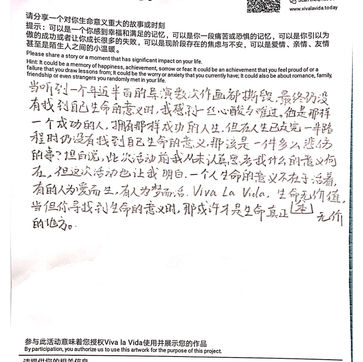 www.vivalavida.today
请分享一个对你生命意义重大的故事或时刻
提示：可以是一个你感到幸福和满足的记忆，可以是你一段痛苦或恐惧的记忆，可以是你引以为
傲的成功或者让你成长很多的失败，可以是现阶段存在的焦虑与不安，可以是爱情、亲情、友情
甚至是陌生人之间的小温暖。
Please share a story or a moment that has significant impact on your life.
Hint: It could be a memory of happiness, achievement, sorrow or fear. It could be an achievement that you feel proud of or a
failure that you draw lessons from; It could be the worry or anxiety that you currently have; It could also be about romance, family,
friendship or even strangers you randomly met in your life.
当听到一个年近半百的导演数次作画都撕毁，最终仍没
有找到自己生命的意义时，我感到一丝心酸与难过，他是那样
一个成功的人，拥有那样成功的人生，但在人生已走完一半路
程时仍没有找到自己生命的意义，那该是一件多么悲伤
的事？但自说，此次活动前我从未认真思考我什么的意义何
在，但这次活动也让我明白，一个人生命的意义不在于活着，
有的人为爱而生，有人为梦而活。Viva La Vida，生命无价值，
当但你寻找到生命的意义时，那或许才是生命真正 无价
的地方。
参与此活动意味着您授权Viva la Vida使用并展示您的作品
By participation, you authorize to us this artwork for the purpose of this project.